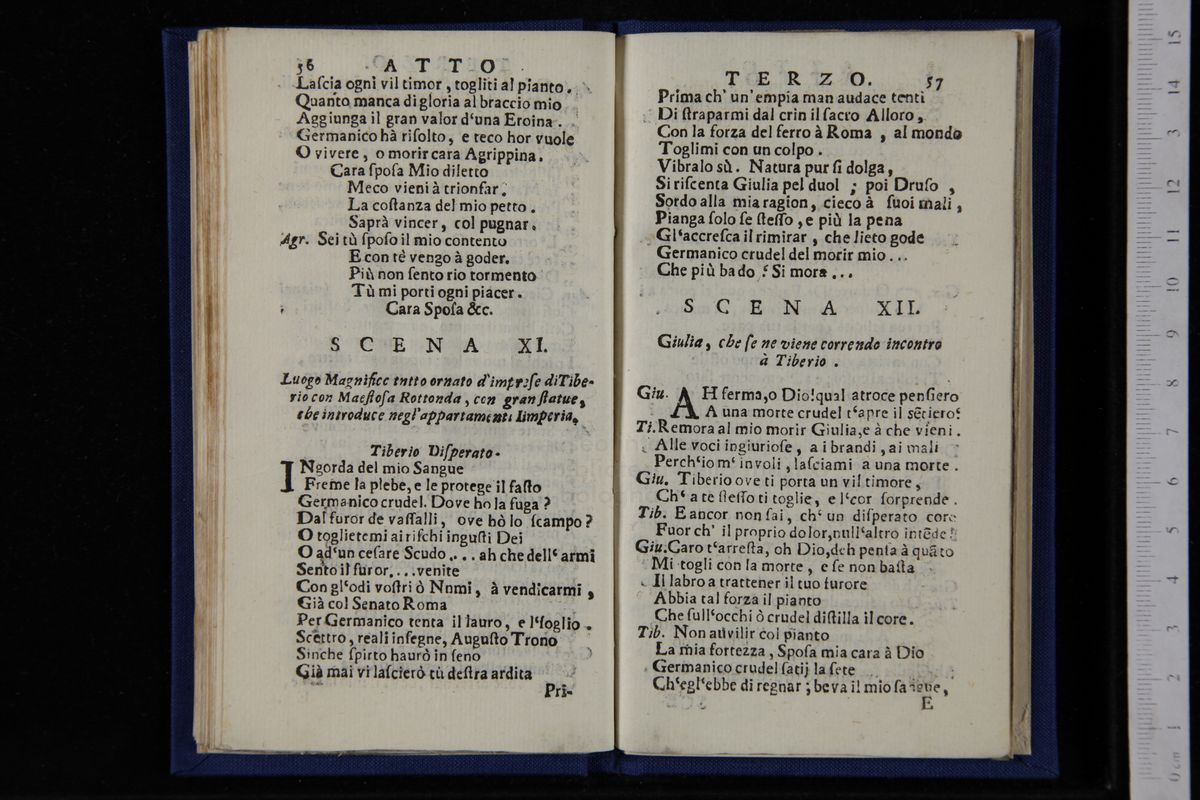 56 ATTO
Laſcia ogni vil timor, togliti al pianto.
Quanto manca di gloria al braccio mio
Aggiunga il gran valor d‘una Eroina.
Germanico hà riſolto, e teco hor vuole
O vivere, o morir cara Agrippina.
Cara ſpoſa Mio diletto
Meco vieni à trionfar.
La coſtanza del mio petto.
Saprà vincer, col pugnar.
Agr. Sei tù ſpoſo il mio contento
E con tè vengo à goder.
Più non ſento rio tormento
Tù mi porti ogni piacer.
Cara Spoſa &c.
SCENA XI.
Luogo Magnifico tntto ornato d'impreſe di Tibe-
rio con Maeſtoſa Rottonda, con gran ſtatue,
che introduce negl'appartamenti Iimperia.
Tiberio Diſperato.
INgorda del mio Sangue
Freme la plebe, e le protege il faſto
Germanico crudel. Dove ho la fuga?
Dal furor de vaſſalli, ove hò lo ſcampo?
O toglietemi ai riſchi ingiuſti Dei
O ad‘un ceſare Scudo.... ah che dell‘ armi
Sento il furor....venite
Con gl‘odi voſtri ò Nnmi, à vendicarmi,
Già col Senato Roma
Per Germanico tenta il lauro, e l‘ſoglio.
Scettro, reali inſegne, Auguſto Trono
Sinche ſpirto haurò in ſeno
Già mai vi laſcierò tù deſtra ardita
Pri-
TERZO. 57
Prima ch' un' empia man audace tenti
Di ſtraparmi dal crin il ſacro Alloro,
Con la forza del ferro à Roma, al mondo
Toglimi con un colpo.
Vibralo sù. Natura pur ſi dolga,
Si riſcenta Giulia pel duol; poi Druſo,
Sordo alla mia ragion, cieco à ſuoi mali,
Pianga ſolo ſe ſteſſo, e più la pena
Gl‘accreſca il rimirar, che lieto gode
Germanico crudel del morir mio...
Che più bado? Si mora...
SCENA XII.
Giulia, che ſe ne viene correndo incontro
à Tiberio.
Giu. AH ferma, o Dio! qual atroce penſiero
A una morte crudel t‘apre il sẽtiero?
Ti. Remora al mio morir Giulia, e à che vieni.
Alle voci ingiurioſe, a i brandi, ai mali
Perch‘io m‘ involi, laſciami a una morte.
Giu. Tiberio ove ti porta un vil timore,
Ch‘ a te ſteſſo ti toglie, e l‘cor ſorprende.
Tib. E ancor non ſai, ch‘ un diſperato core
Fuor ch' il proprio dolor, null‘altro intẽde?
Giu. Caro t‘arreſta, oh Dio, deh penſa à quãto
Mi togli con la morte, e ſe non baſta
Il labro a trattener il tuo furore
Abbia tal forza il pianto
Che ſull‘occhi ò crudel diſtilla il core.
Tib. Non auvilir col pianto
La mia fortezza, Spoſa mia cara à Dio
Germanico crudel ſatij la ſete
Ch‘egl‘ebbe di regnar; beva il mio ſangue,
E